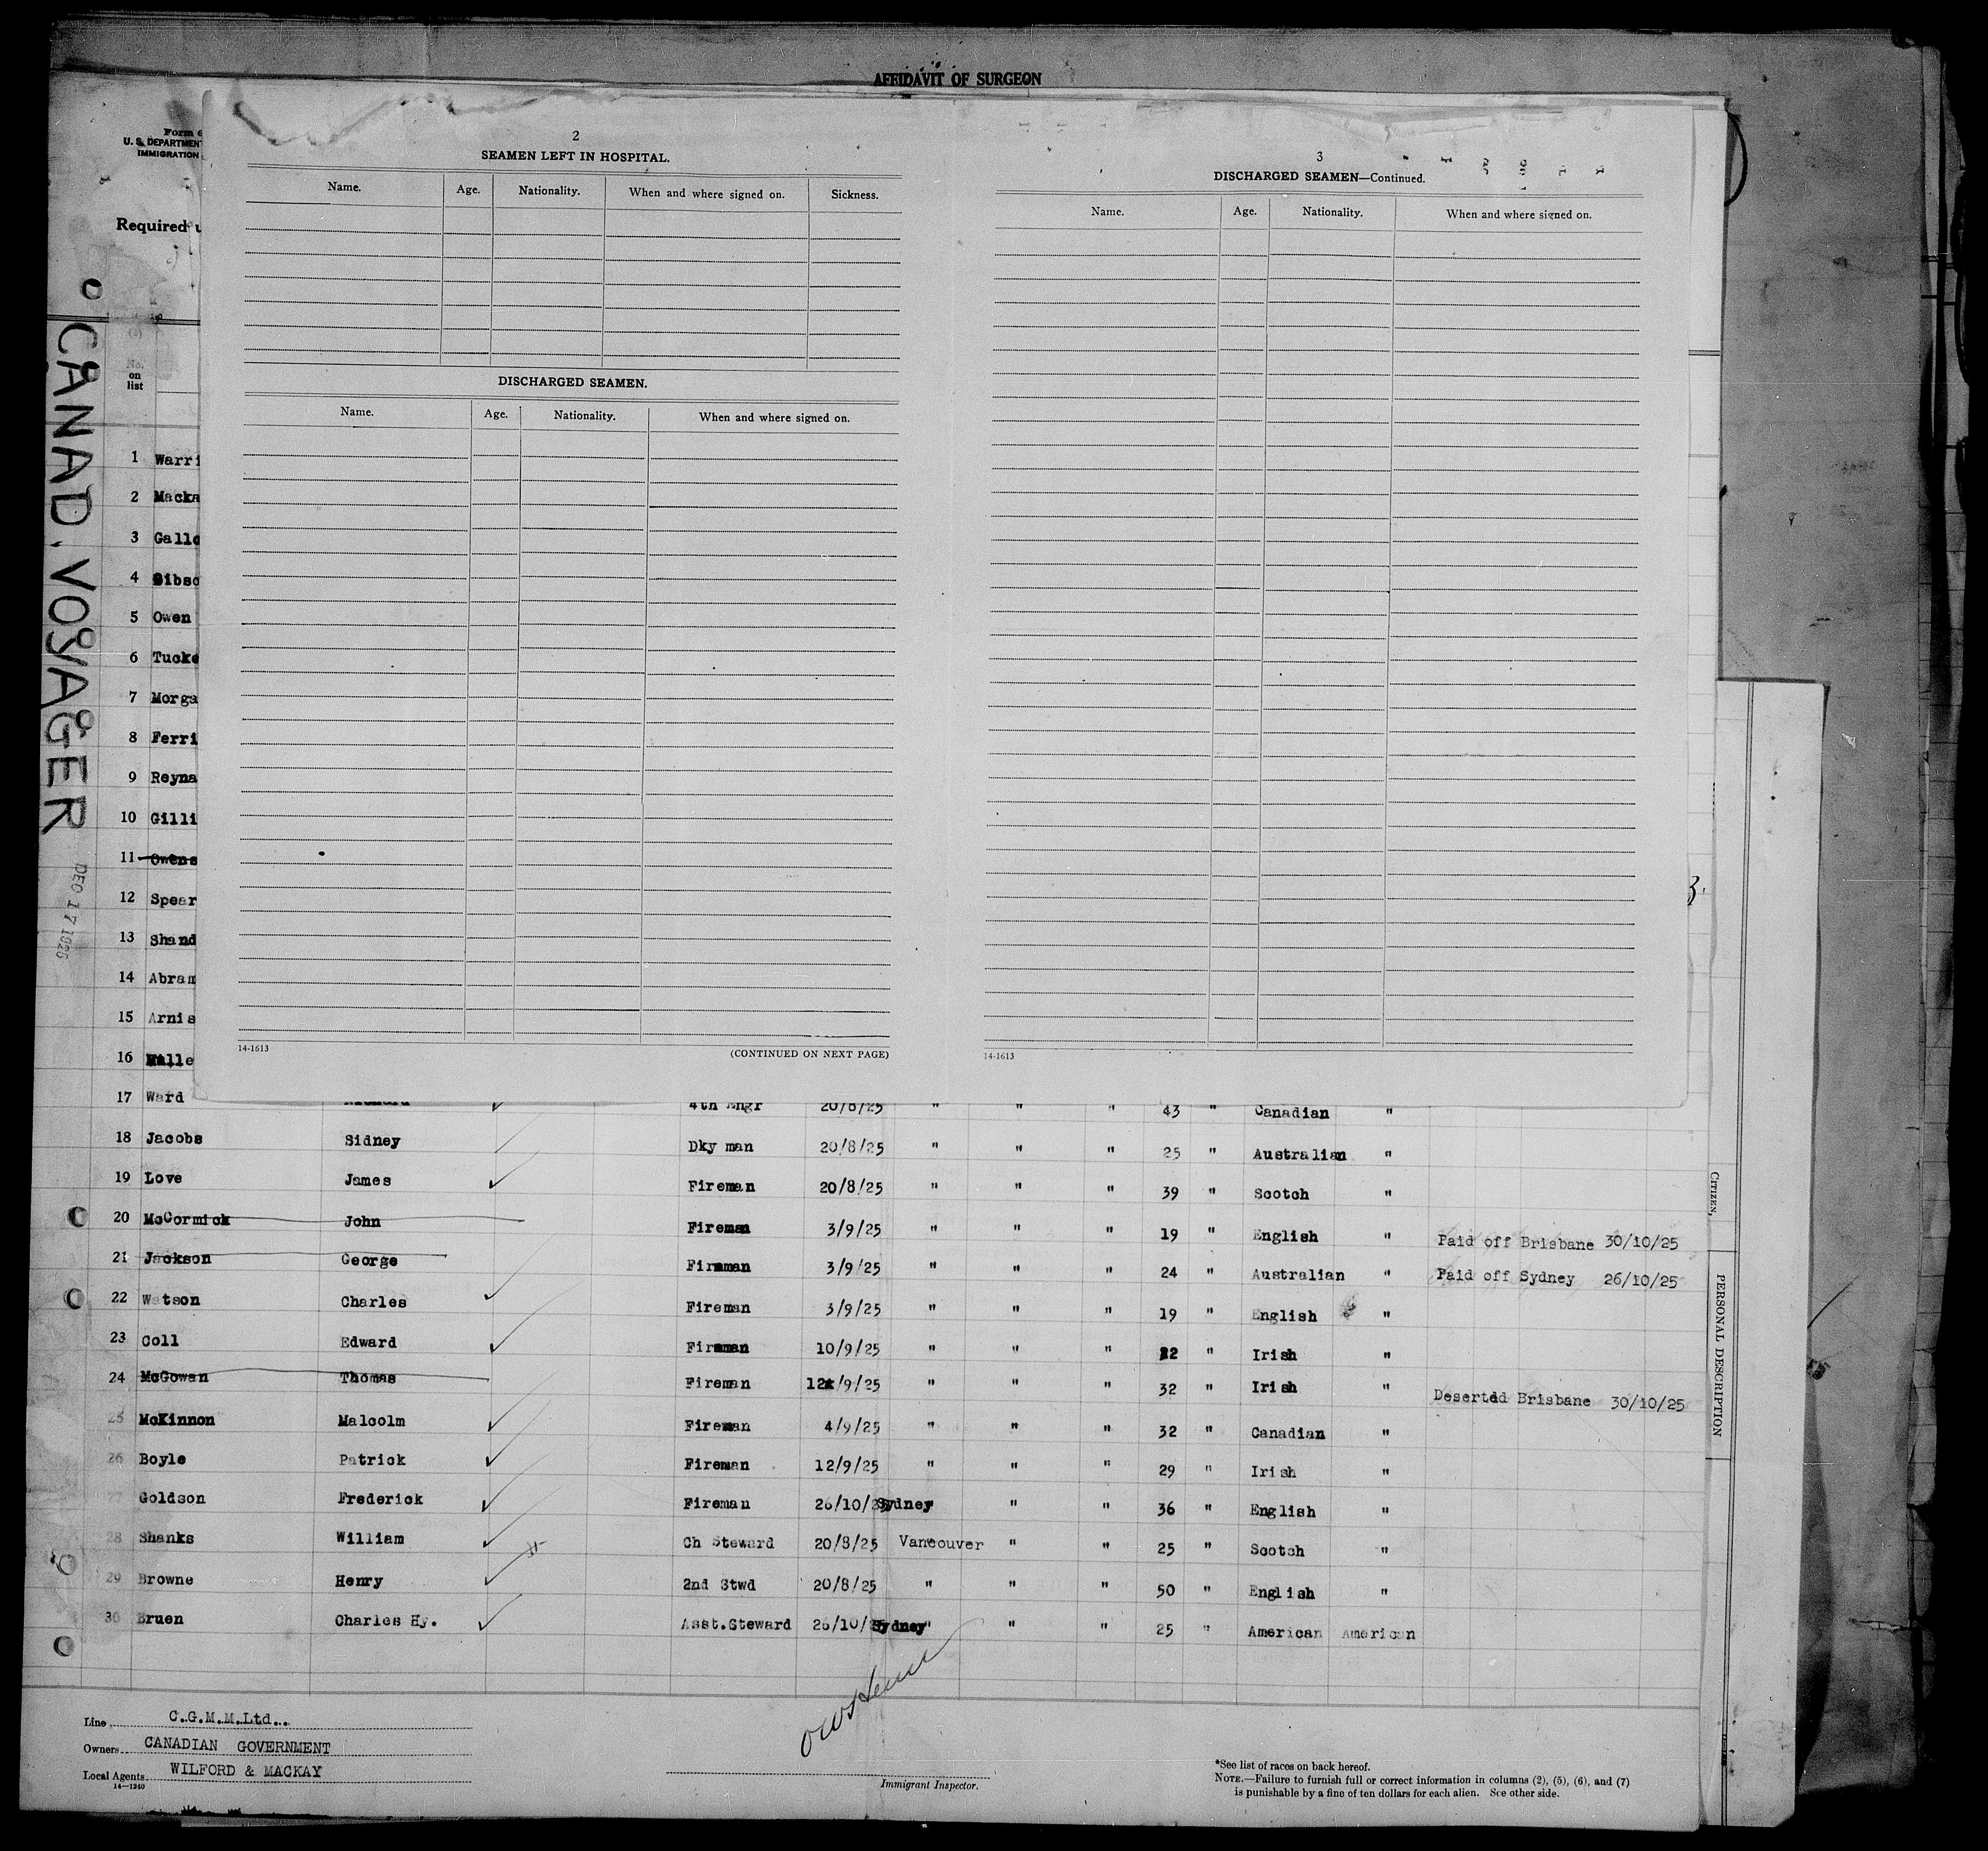 AFFIDAVIT OF SURGEON
Form 6
U. S. DEPARTMENT
IMMIGRATION
Required u
No.
on
list
CANAD. VOYAGER
DEC 17 1925
2
SEAMEN LEFT IN HOSPITAL.
Name. Age. Nationality. When and where signed on. Sickness.
DISCHARGED SEAMEN.
Name. Age. Nationality. When and where signed on.
14-1613 (CONTINUED ON NEXT PAGE)
3
DISCHARGED SEAMEN—Continued.
Name. Age. Nationality. When and where signed on.
14-1613
1 Warri
2 Macka
3 Gallo
4 Gibso
5 Owen
6 Tucke
7 Morga
8 Ferri
9 Reyna
10 Gilli
11 Owens
12 Spear
13 Shand
14 Abram
15 Arnis
16 Mille
17 Ward 4th Engr 20/8/25 " " " 43 " Canadian "
18 Jacobs Sidney Dky man 20/8/25 " " " 25 " Australian "
19 Love James Fireman 20/8/25 " " " 39 " Scotch "
20 McCormick John Fireman 3/9/25 " " " 19 " English " Paid off Brisbane 30/10/25
21 Jackson George Firmman 3/9/25 " " " 24 " Australian " Paid off Sydney 26/10/25
22 Watson Charles Fireman 3/9/25 " " " 19 " English "
23 Coll Edward Firmman 10/9/25 " " " 22 " Irish "
24 McGowan Thomas Fireman 12/9/25 " " " 32 " Irish " Desertdd Brisbane 30/10/25
25 McKinnon Malcolm Fireman 4/9/25 " " " 32 " Canadian "
26 Boyle Patrick Fireman 12/9/25 " " " 29 " Irish "
27 Goldson Frederick Fireman 26/10/25 Sydney " " 36 " English "
28 Shanks William Ch Steward 20/8/25 Vancouver " " 25 " Scotch "
29 Browne Henry 2nd Stwd 20/8/25 " " " 50 " English "
30 Bruen Charles Hy. Asst.Steward 26/10/25 Sydney " " 25 " American American
CITIZEN,
PERSONAL DESCRIPTION
3.
Line C.G.M.M.Ltd..
Owners CANADIAN GOVERNMENT
Local Agents WILFORD & MACKAY
14—1240
Immigrant Inspector.
*See list of races on back hereof.
NOTE.—Failure to furnish full or correct information in columns (2), (5), (6), and (7)
is punishable by a fine of ten dollars for each alien. See other side.